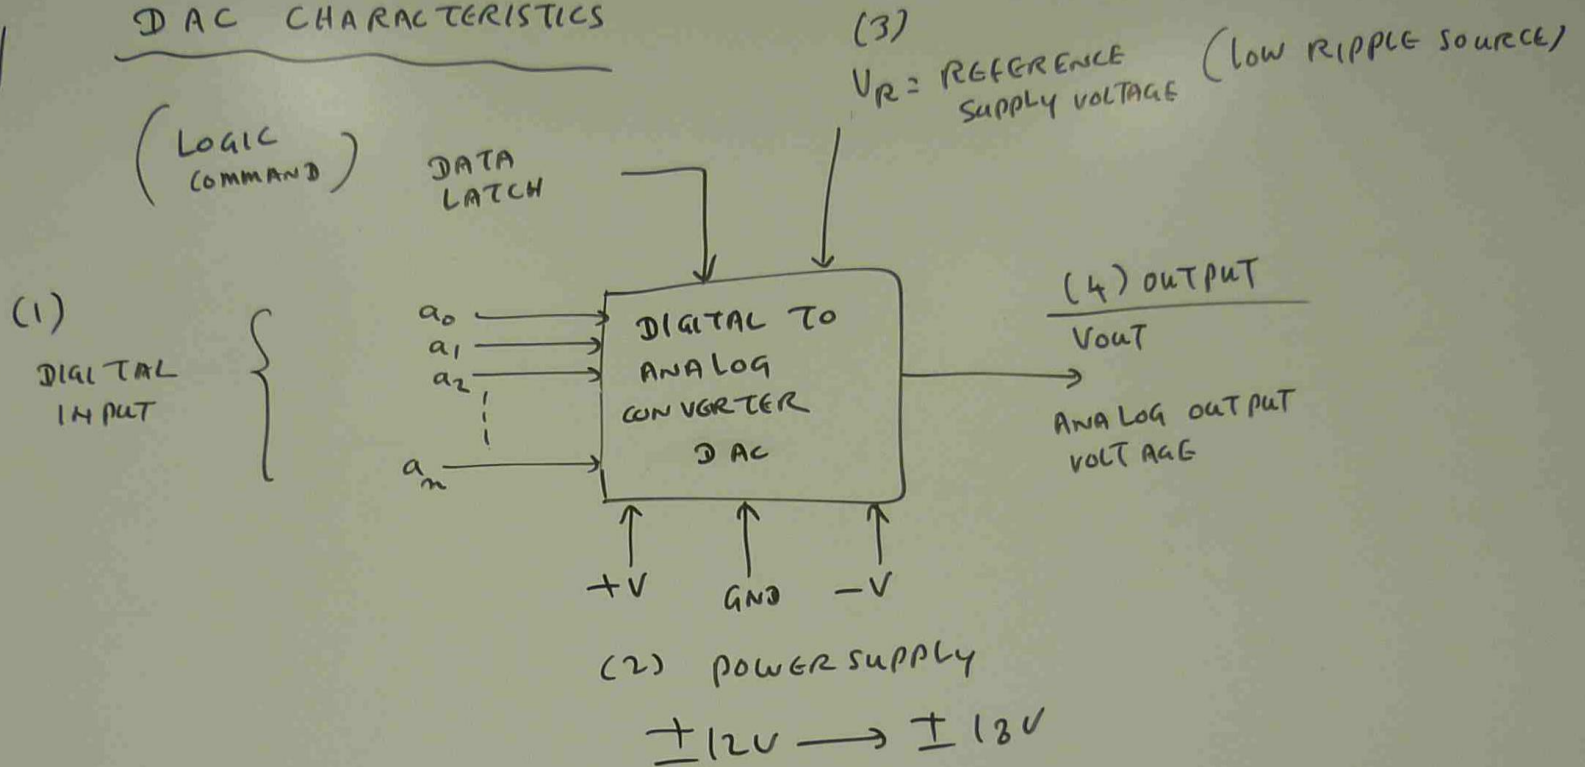 DAC CHARACTERISTICS
(3)
VR = REFERENCE
SUPPLY VOLTAGE
(LOW RIPPLE SOURCE)
(LOGIC
COMMAND)
DATA
LATCH
(1)
DIGITAL
INPUT
a0
a1
a2
an
DIGITAL TO
ANALOG
CONVERTER
DAC
(4) OUTPUT
VOUT
ANALOG OUTPUT
VOLTAGE
+V
GND
-V
(2) POWER SUPPLY
±12V → ±18V